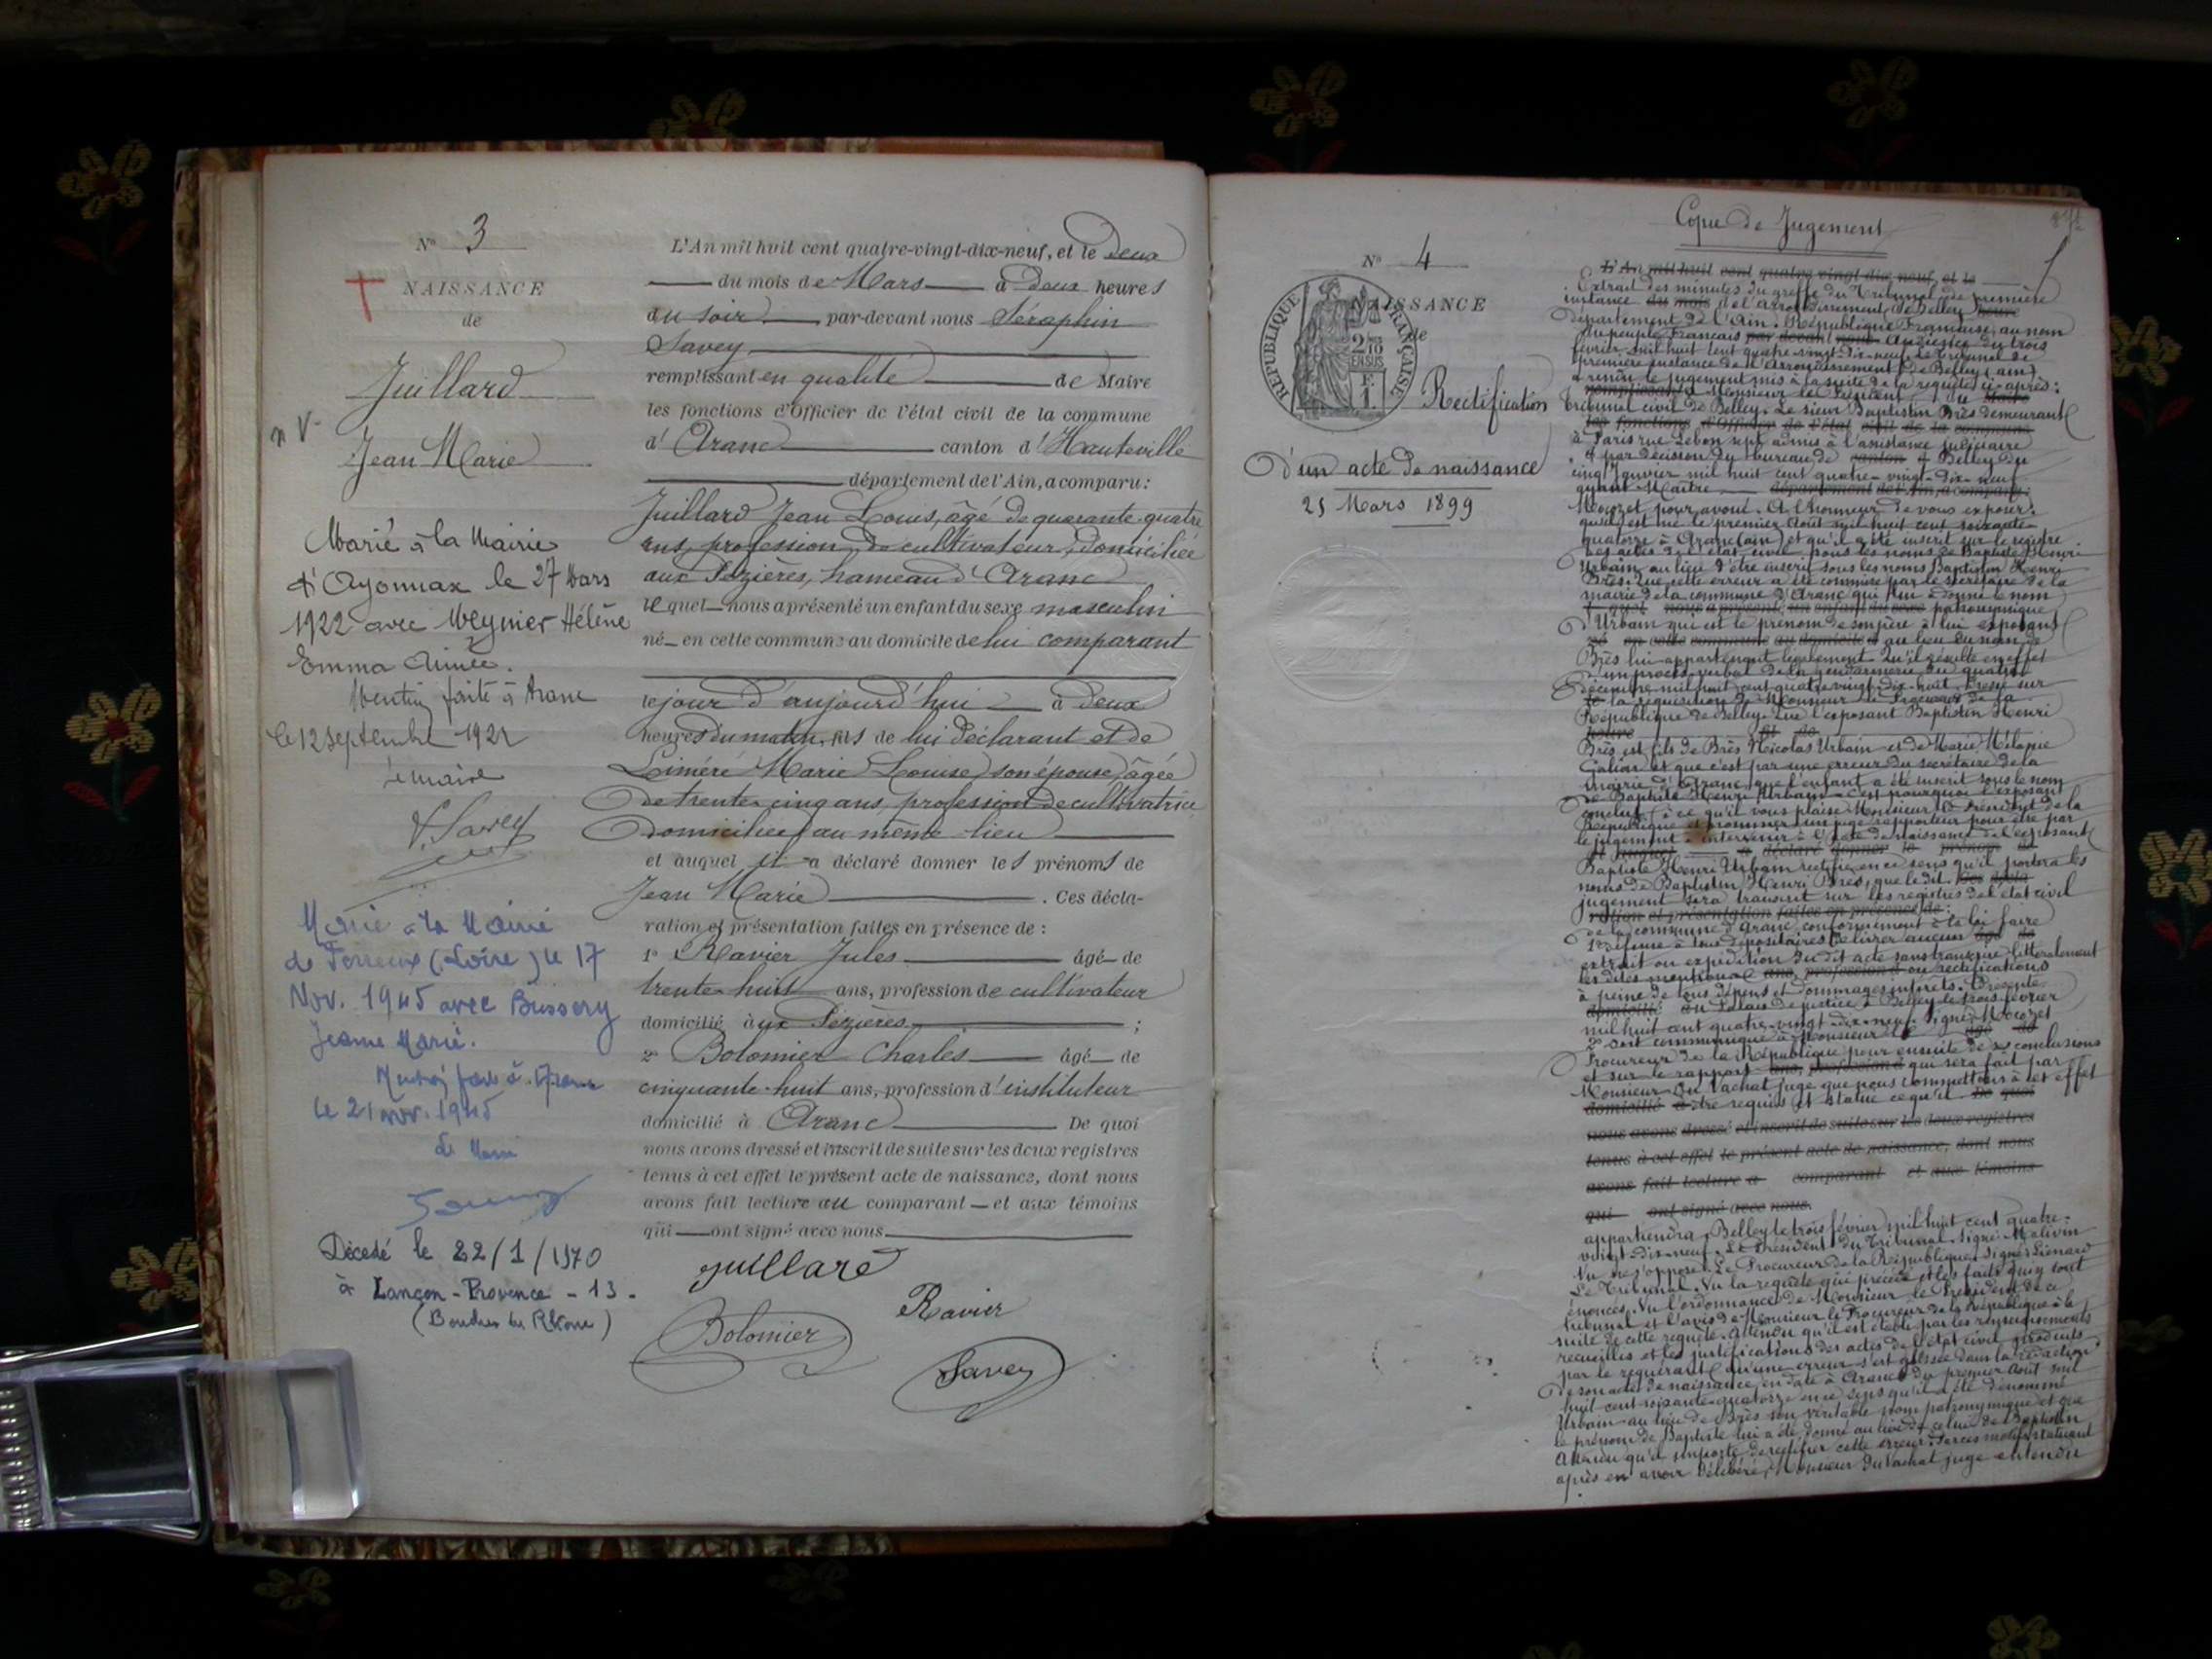 N° 3
NAISSANCE
de
Juillard
Jean Marie
Marié à la Mairie
d'Oyonnax le 27 Mars
1922 avec Meynier Hélène
Emma Aimée.
Mention faite à Aranc
le 12 Septembre 1922
Le maire
S. Savey
Marié à la Mairie
de Perreux (Loire) le 17
Nov. 1945 avec Bussery
Jeanne Marie.
Mention faite à Aranc
le 21 nov. 1945
Le Maire
Décédé le 22/1/1970
à Lançon-Provence - 13 -
(Bouches du Rhône)
L'An mil huit cent quatre-vingt-dix-neuf, et le deux
du mois de Mars à deux heures
du soir par-devant nous Séraphin
Savey
remplissant en qualité de Maire
les fonctions d'Officier de l'état civil de la commune
d'Aranc canton d'Hauteville
département de l'Ain, a comparu :
Juillard Jean Louis, âgé de quarante-quatre
ans, profession de cultivateur, domiciliée
aux Pézières, hameau d'Aranc
lequel nous a présenté un enfant du sexe masculin
né en cette commune au domicile de lui comparant
le jour d'aujourd'hui à deux
heures du matin, fils de lui déclarant et de
Marie Louise son épouse, âgée
de trente-cinq ans, profession de cultivatrice
domiciliée au même lieu
et auquel il a déclaré donner les prénoms de
Jean Marie. Ces décla-
ration et présentation faites en présence de :
1° Ravier Jules âgé de
trente-huit ans, profession de cultivateur
domicilié aux Pézières ;
2° Bolomier Charles âgé de
cinquante-huit ans, profession d'instituteur
domicilié à Aranc De quoi
nous avons dressé et inscrit de suite sur les deux registres
tenus à cet effet le présent acte de naissance, dont nous
avons fait lecture au comparant et aux témoins
qui ont signé avec nous
Juillard
Ravier
Bolomier
Savey
N° 4
NAISSANCE
de
RÉPUBLIQUE FRANÇAISE
Rectification
D'un acte de naissance
25 Mars 1899
Copie de Jugement
L'An mil huit cent quatre-vingt-dix-neuf, et le
Extrait des minutes du greffe du Tribunal de première
instance du mois de l'arrondissement de Belley heure
département de l'Ain. République Française, au nom
du peuple Français par devant nous Audience du trois
février mil huit cent quatre-vingt-dix-neuf. Le Tribunal de
première instance de l'arrondissement de Belley (ain)
a rendu le jugement mis à la suite de la requête ci-après :
remplissant Monsieur le Président du Maire
Tribunal civil de Belley. Le sieur Baptistin Brès demeurant
les fonctions d'Officier de l'état civil de la commune
à Paris rue Lebon sept admis à l'assistance judiciaire
par décision du bureau de canton Belley du
cinq Janvier mil huit cent quatre-vingt-dix-neuf
ayant Maître département de l'Ain, a comparu :
Mocozet pour avoué. A l'honneur de vous exposer.
qu'il est né le premier Août mil huit cent soixante-
quatorze à Aranc (ain) et qu'il a été inscrit sur le registre
des actes de l'état civil sous les noms de Baptiste Henri
Urbain au lieu d'être inscrit sous les noms Baptistin Henri
Brès. Que cette erreur a été commise par le secrétaire de la
mairie de la commune d'Aranc qui lui a donné le nom
lequel nous a présenté un enfant du sexe patronymique
d'Urbain qui est le prénom de son père à lui exposant
né en cette commune au domicile d au lieu du nom de
Brès lui appartenant légalement. Qu'il résulte en effet
d'un procès-verbal de la gendarmerie du quatre
décembre mil huit cent quatre-vingt-dix-huit dressé sur
le la réquisition de Monsieur le Procureur de la
République de Belley. Que l'exposant Baptistin Henri
heure fil de
Brès est fils de Brès Nicolas Urbain et de Marie Mélanie
et que c'est par une erreur du secrétaire de la
mairie d'Aranc que l'enfant a été inscrit sous le nom
de Baptiste Henri Urbain. C'est pourquoi l'exposant
conclut à ce qu'il vous plaise Monsieur le Président de la
République et nommer un juge rapporteur pour être par
le jugement à intervenir à l'acte de naissance de l'exposant
et auquel a déclaré donner le prénom de
Baptiste Henri Urbain rectifié en ce sens qu'il portera les
noms de Baptistin Henri Brès, que ledit. Ces décla-
jugement sera transcrit sur les registres de l'état civil
ration et présentation faites en présence de :
de la commune d'Aranc, conformément à la loi faire
1° défense à tous dépositaires de livrer aucun âgé de
extrait ou expédition dudit acte sans transcrire littéralement
les dites mentions ans, profession d ou rectifications
à peine de tous dépens et dommages intérêts. Présenté
domicilié au Palais de justice à Belley le trois février
mil huit cent quatre-vingt-dix-neuf. Signé Mocozet
2° Soit communiqué à Monsieur le âgé de
Procureur de la République pour ensuite de ses conclusions
et sur le rapport ans, profession d qui sera fait par
Monsieur Du Vachat juge que nous commettons à cet effet
domicilié à être requis et statué ce qu'il De quoi
nous avons dressé et inscrit de suite sur les deux registres
tenus à cet effet le présent acte de naissance, dont nous
avons fait lecture a comparant et aux témoins
qui ont signé avec nous.
appartiendra. Belley le trois février mil huit cent quatre-
vingt-dix-neuf. Le Président du Tribunal. Signé
Vu ne s'oppose. Le Procureur de la République. Signé Liénard
Le Tribunal. Vu la requête qui précède et les faits qui y sont
énoncés. Vu l'ordonnance de Monsieur le Président de ce
tribunal et l'avis de Monsieur le Procureur de la République à la
suite de cette requête. Attendu qu'il est établi par les renseignements
recueillis et les justifications des actes de l'état civil produits
par le requérant qu'une erreur s'est glissée dans la rédaction
de son acte de naissance, en date à Aranc du premier août mil
huit cent soixante-quatorze en ce sens qu'il a été dénommé
Urbain au lieu de Brès son véritable nom patronymique et que
le prénom de Baptiste lui a été donné au lieu de celui de Baptistin
Attendu qu'il importe de rectifier cette erreur. Par ces motifs statuant
après en avoir délibéré, Monsieur Du Vachat juge entendu